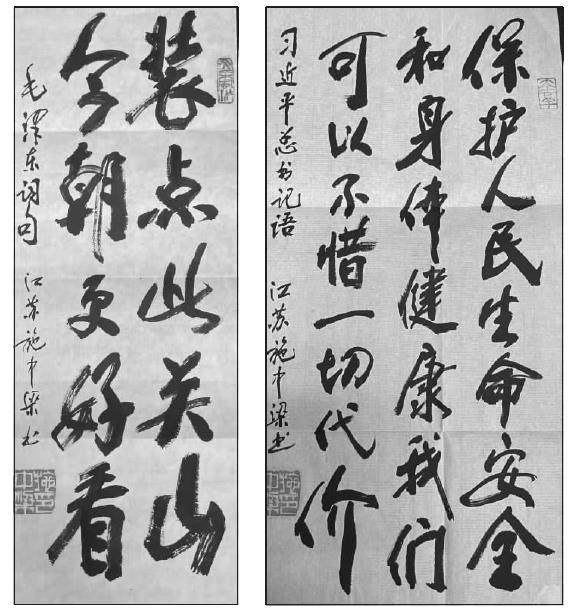 保护人民生命安全
和身体健康我们
可以不惜一切代价
习近平总书记语
江苏施中梁书
装点此关山
今朝更好看
毛泽东词句
江苏施中梁书